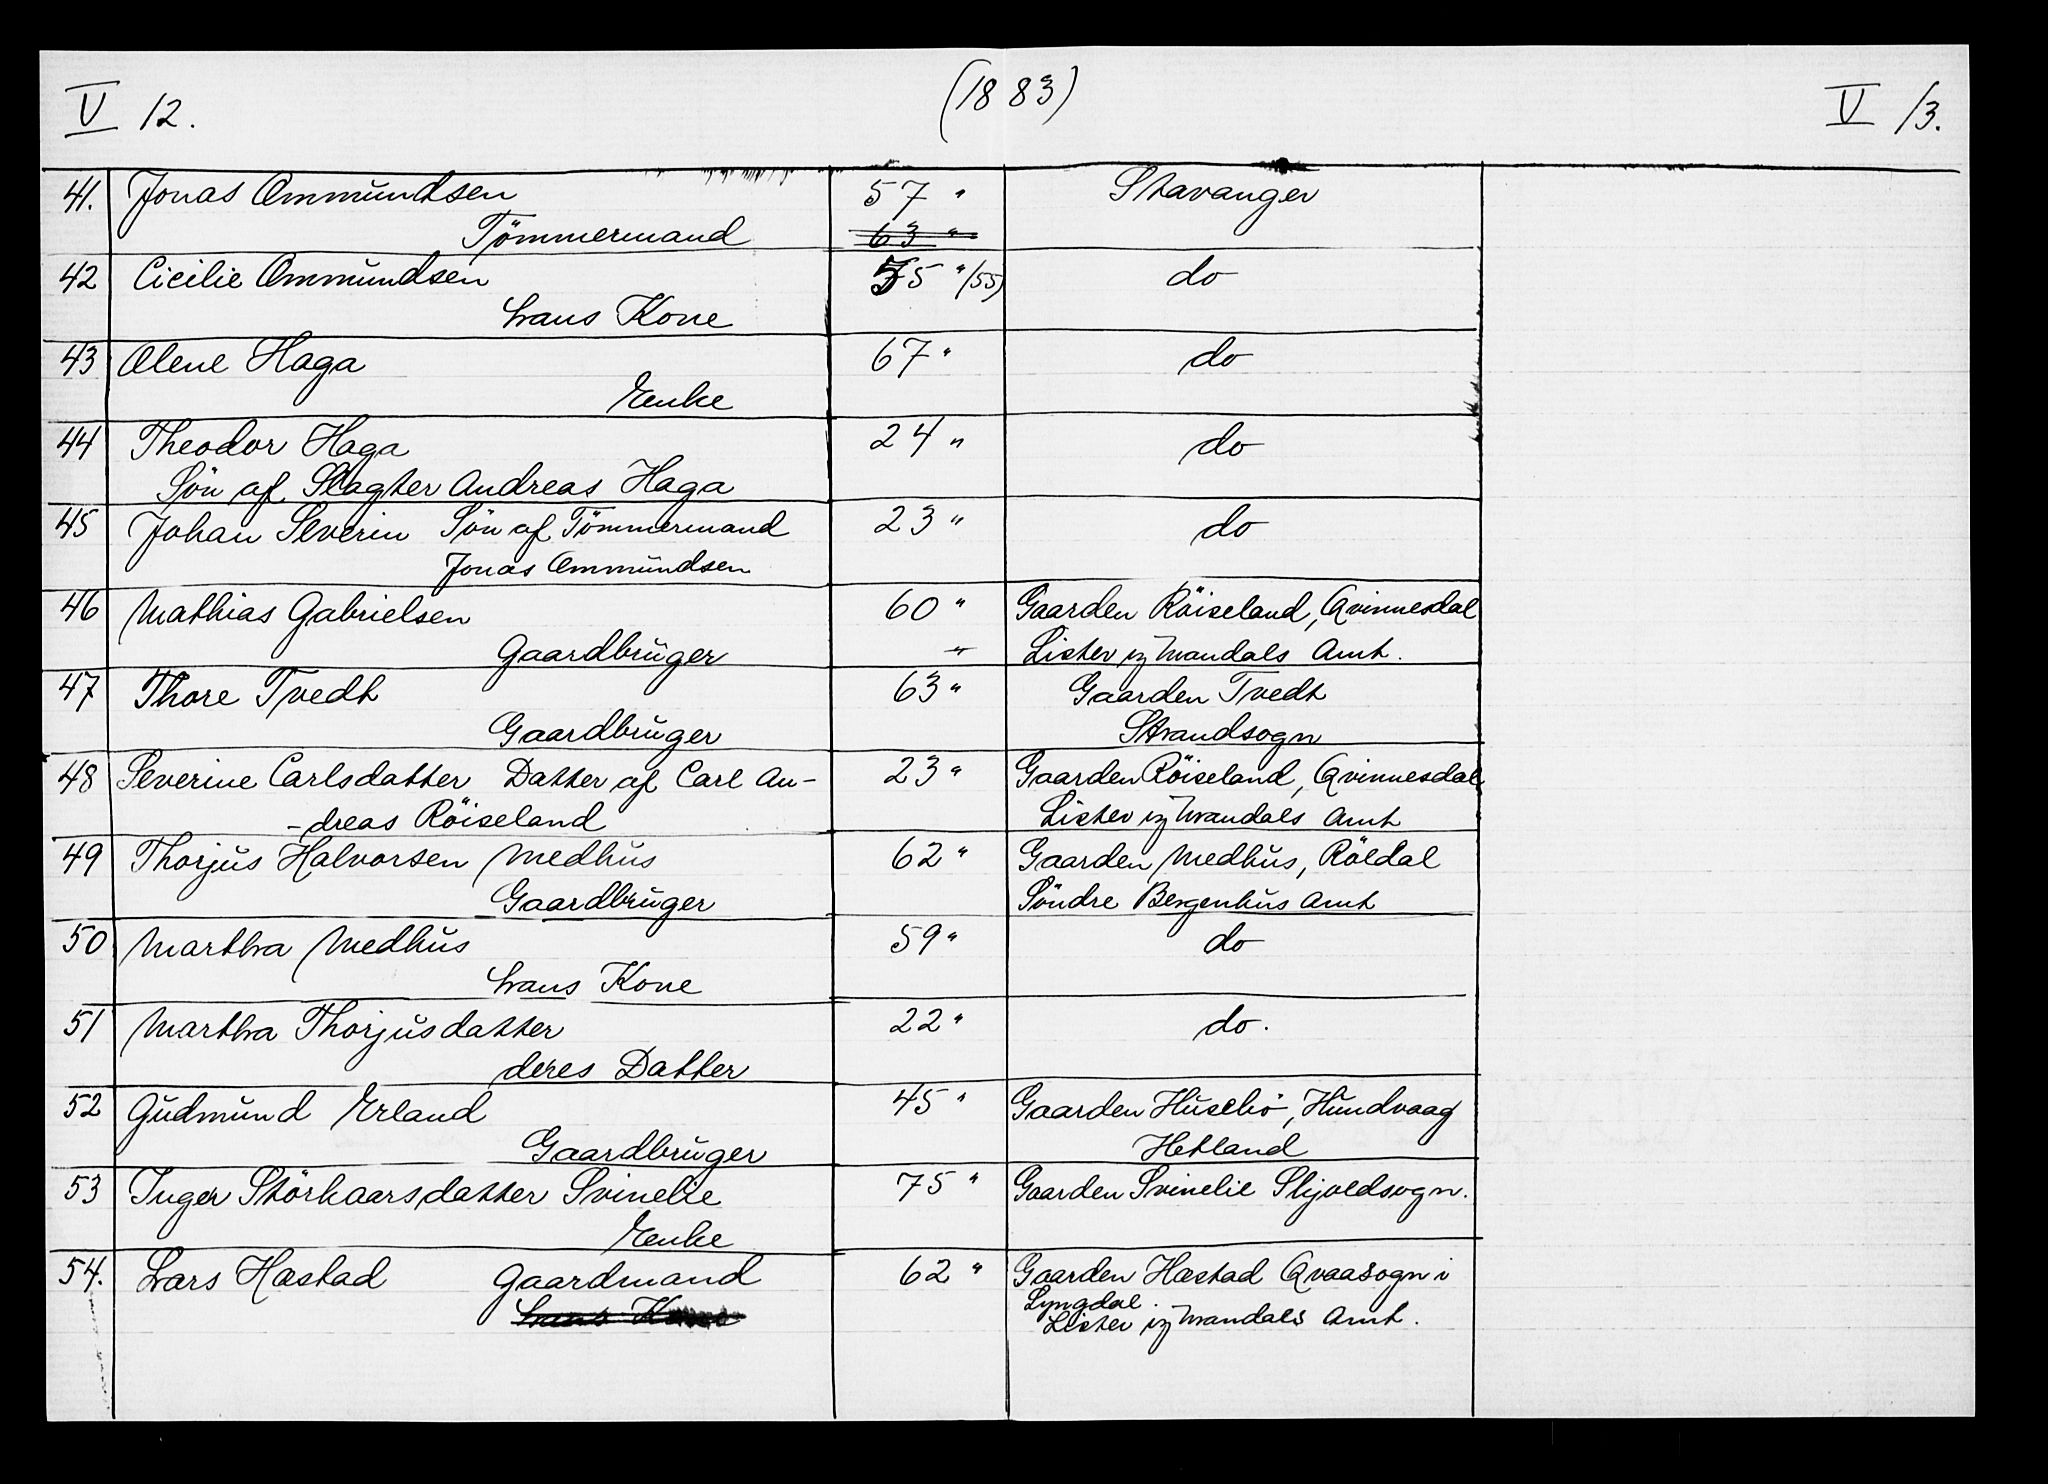 V 12. (1883) V 13.
41. Jonas Ommundsen 57 " Stavanger
Tömmermand 63 "
42 Cicilie Ommundsen 55 " (55) do
hans Kone
43 Olene Haga 67 " do
Enke
44 Theodor Haga 24 " do
Sön af Slagter Andreas Haga
45 Johan Severin Sön af Tömmermand 23 " do
Jonas Ommundsen
46 Mathias Gabrielsen 60 " Gaarden Röiseland, Qvinnesdal
Gaardbruger " Lister og Mandals Amt.
47 Thore Tvedt 63 " Gaarden Tvedt
Gaardbruger Strandsogn
48 Severine Carlsdatter Datter af Carl An- 23 " Gaarden Röiseland, Qvinnesdal
-dreas Röiseland Lister og Mandals Amt
49 Thorjus Halvorsen Medhus 62 " Gaarden Medhus, Röldal
Gaardbruger Söndre Bergenhus Amt
50 Martha Medhus 59 " do
hans Kone
51 Martha Thorjusdatter 22 " do.
deres Datter
52 Gudmund Erland 45 " Gaarden Husebö, Hundvaag
Gaardbruger Hetland
53 Inger Störkaarsdatter Svinelie 75 " Gaarden Svinelie Skjoldsogn.
Enke
54. Lars Hæstad Gaardmand 62 " Gaarden Hæstad Qvaasogn i
hans Kone Lyngdal.
Lister og Mandals Amt.